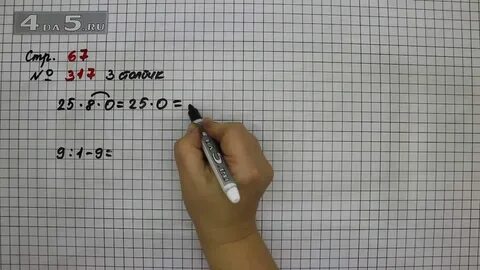 4DA5.RU
Стр. 67
№ 317 3 столбик
25 · 8 · 0 = 25 · 0 =
9 : 1 - 9 =